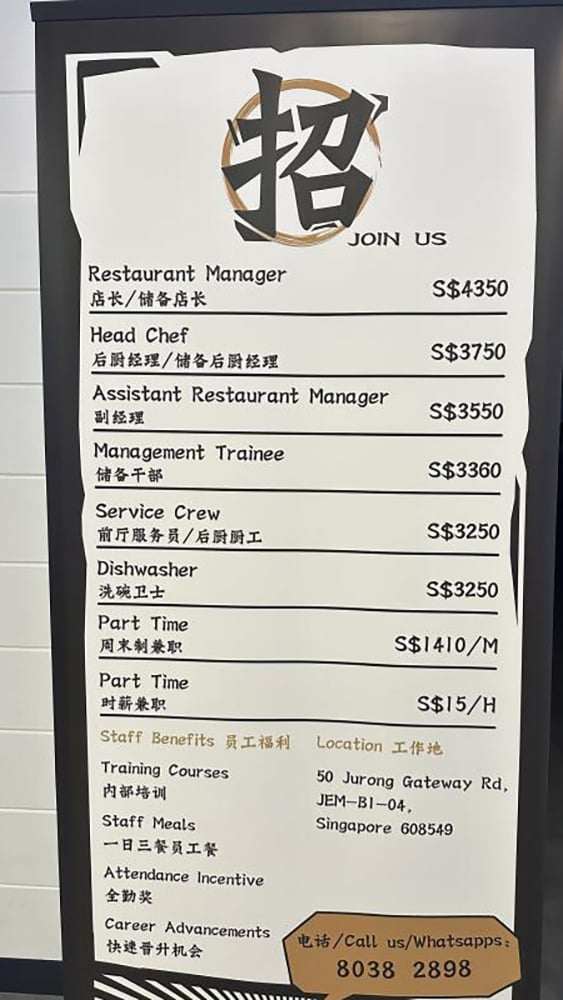 招
JOIN US
Restaurant Manager
店长/储备店长
S$4350
Head Chef
后厨经理/储备后厨经理
S$3750
Assistant Restaurant Manager
副经理
S$3550
Management Trainee
储备干部
S$3360
Service Crew
前厅服务员/后厨厨工
S$3250
Dishwasher
洗碗卫士
S$3250
Part Time
周末制兼职
S$1410/M
Part Time
时薪兼职
S$15/H
Staff Benefits 员工福利
Training Courses
内部培训
Staff Meals
一日三餐员工餐
Attendance Incentive
全勤奖
Career Advancements
快速晋升机会
Location 工作地
50 Jurong Gateway Rd,
JEM-B1-04,
Singapore 608549
电话/Call us/Whatsapps:
8038 2898